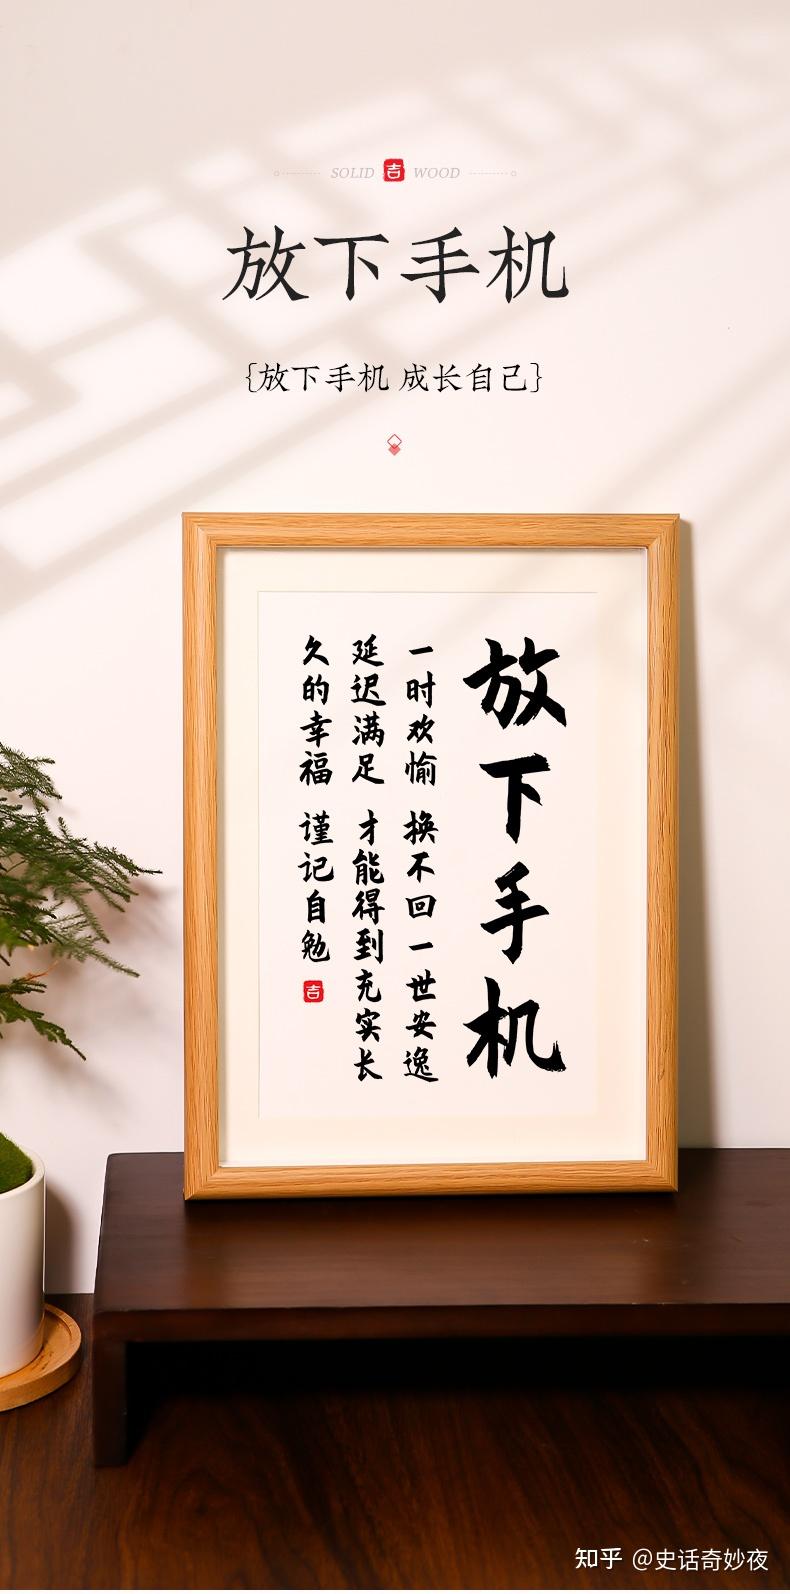 SOLID 吉 WOOD
放下手机
{放下手机 成长自己}
放下手机
一时欢愉 换不回一世安逸
延迟满足 才能得到充实长
久的幸福 谨记自勉
吉
知乎 @史话奇妙夜